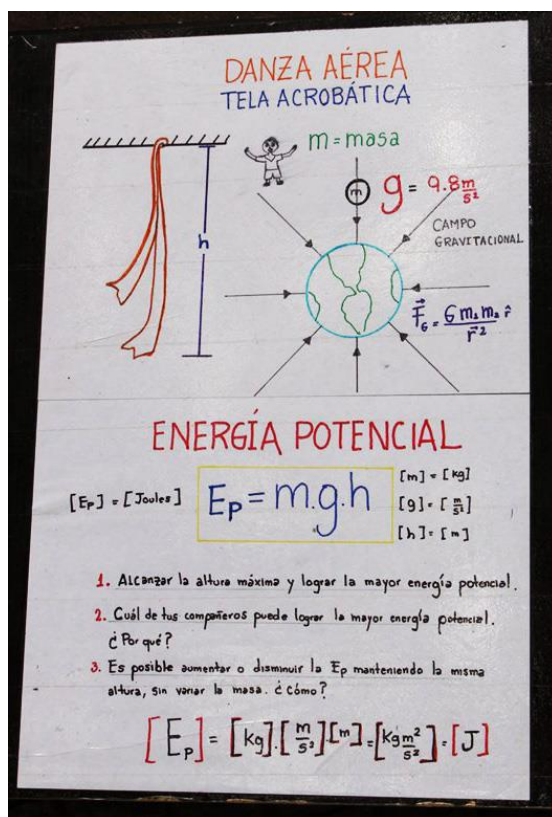 DANZA AÉREA
TELA ACROBÁTICA
m = masa
m
g = 9.8 m/s²
h
CAMPO
GRAVITACIONAL
F⃗_G = G m₁ m₂ r̂ / r⃗²
ENERGÍA POTENCIAL
[Ep] = [Joules]
Ep = m.g.h
[m] = [kg]
[g] = [m/s²]
[h] = [m]
1. Alcanzar la altura máxima y lograr la mayor energía potencial.
2. Cuál de tus compañeros puede lograr la mayor energía potencial.
¿Por qué?
3. Es posible aumentar o disminuir la Ep manteniendo la misma
altura, sin variar la masa. ¿Cómo?
[Ep] = [kg].[m/s²][m] = [kg m²/s²] = [J]